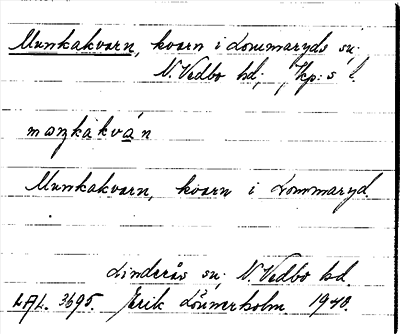 Munkakvarn, kvarn i Lommaryds sn.
N. Vedbo hd; Jkp:s l.
Munkakvarn, kvarn i Lommaryd.
Linderås sn. N. Vedbo hd.
LAL. 3695. Erik Lönnerholm 1940.